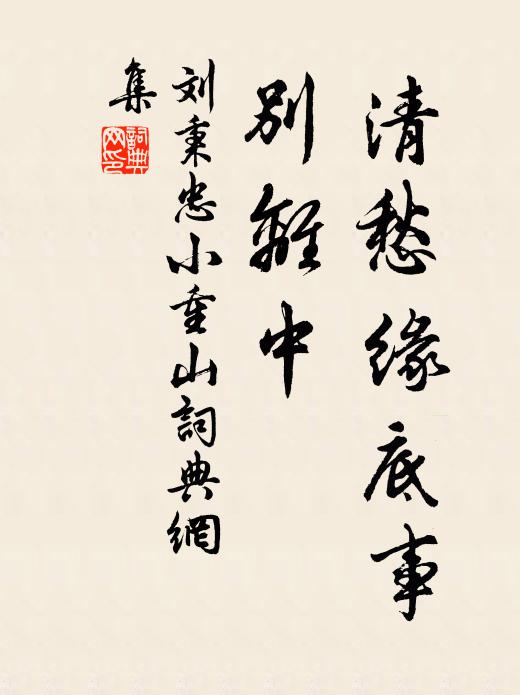 清愁缘底事
别離中
刘秉忠小重山詞典網
集
詞典網印